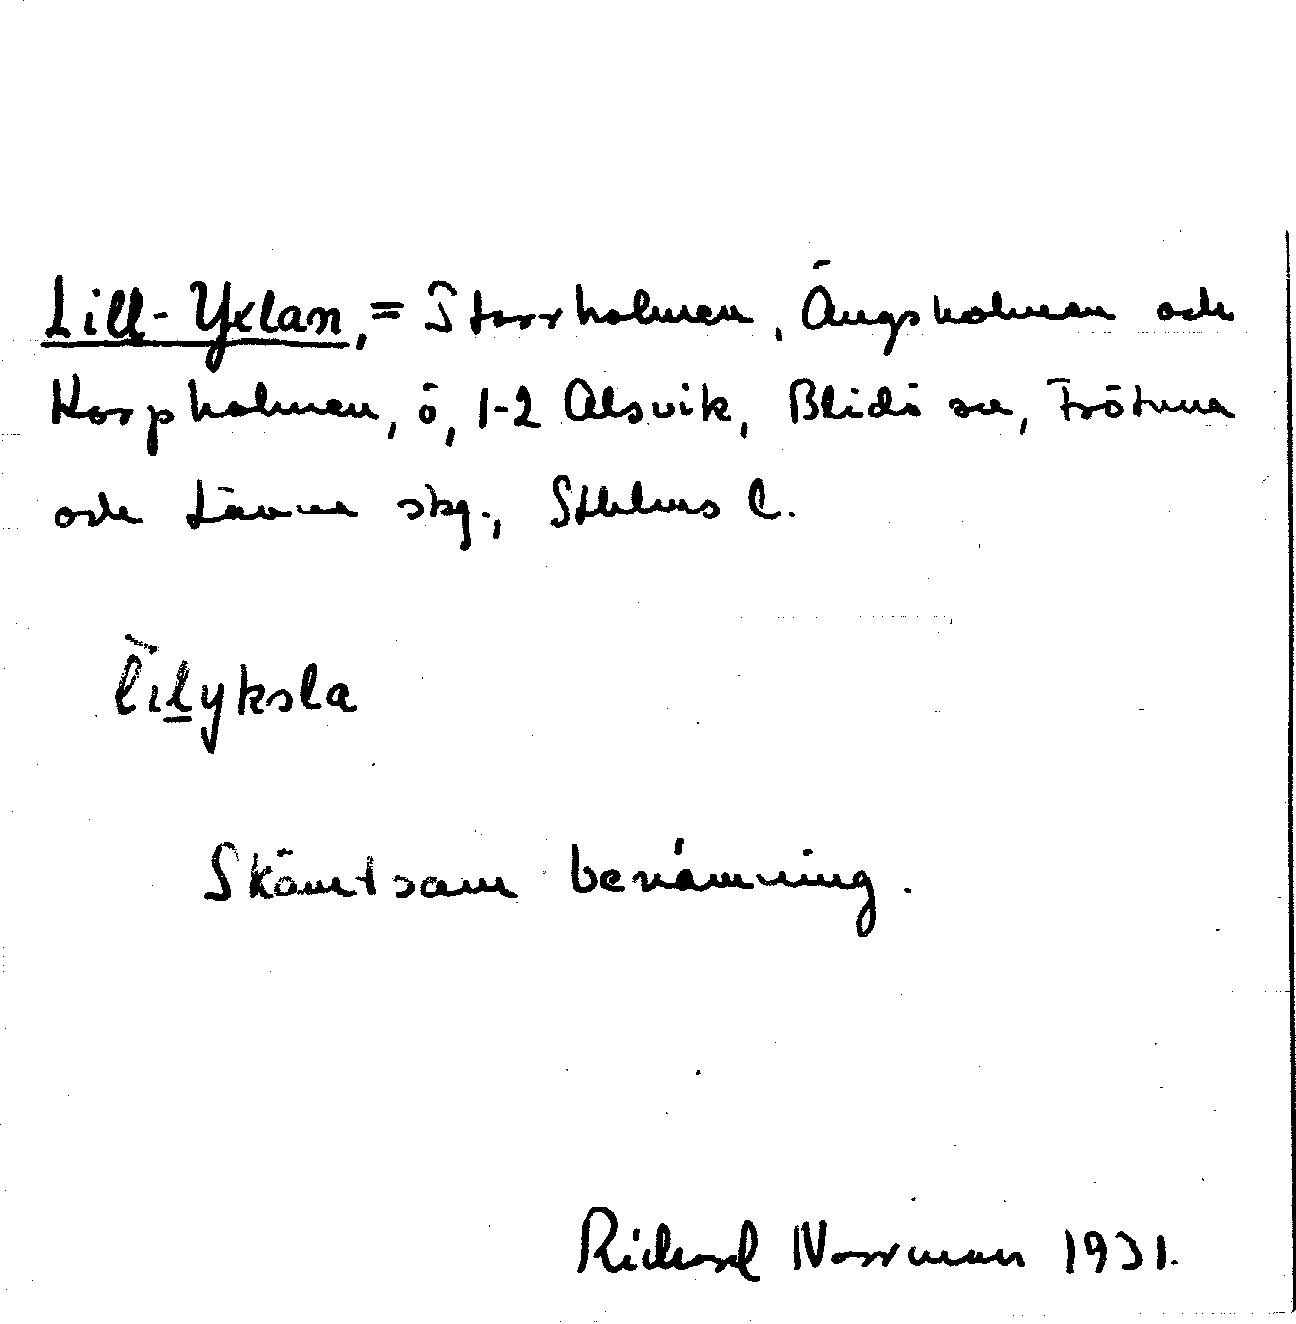 Lill-Yxlan, = Storrholmen, Ängsholmen och
Korpholmen, ö, 1-2 Alsvik, Blidö sn, Frötuna
och Länna skg., Sthlms l.
lilyksla
Skämtsam benämning.
Richard Norrman 1931.